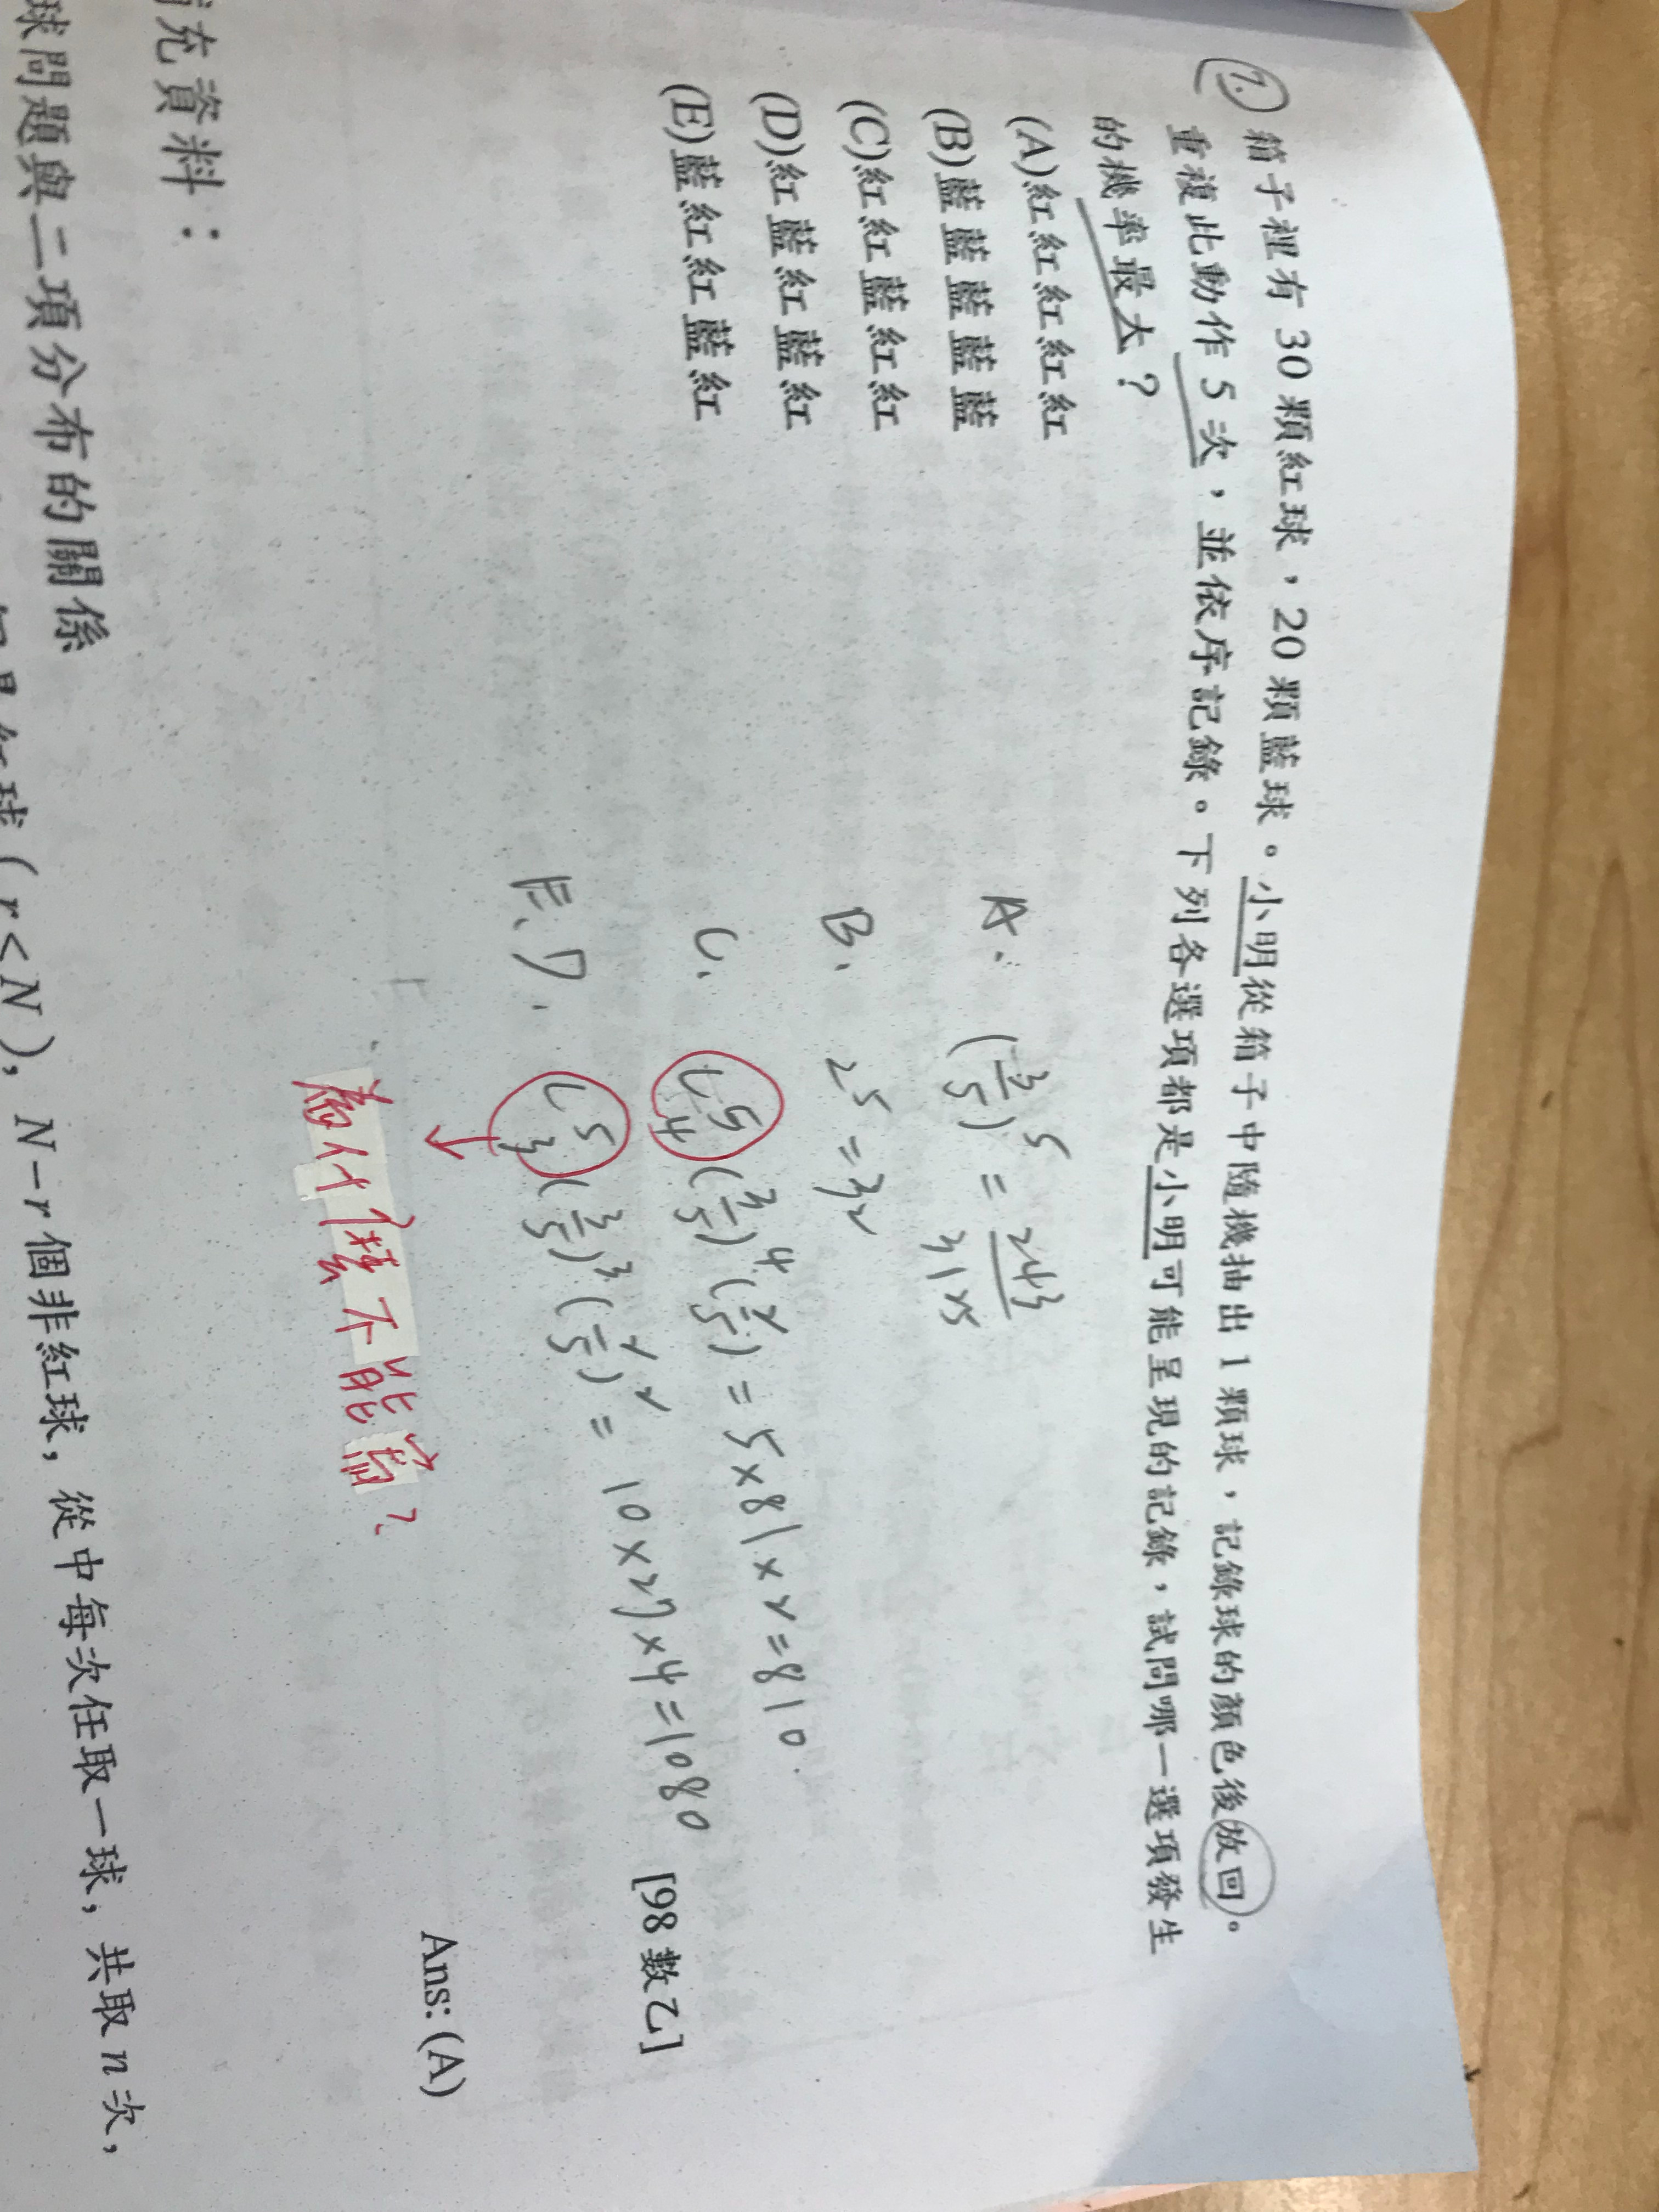 7. 箱子裡有 30 顆紅球，20 顆藍球。小明從箱子中隨機抽出 1 顆球，記錄球的顏色後放回。
重複此動作 5 次，並依序記錄。下列各選項都是小明可能呈現的記錄，試問哪一選項發生
的機率最大？
(A)紅紅紅紅紅
(B)藍藍藍藍藍
(C)紅紅藍紅紅
(D)紅藍紅藍紅
(E)藍紅紅藍紅
A. (3/5)^5 = 243/3125
B. 2^5 = 32
C. C^5_4 (3/5)^4 (2/5) = 5×81×2=810
E、D. C^5_3 (3/5)^3 (2/5)^2 = 10×27×4=1080
[98 數乙]
為什麼不能寫？
Ans: (A)
充資料：
球問題與二項分布的關係
球 (r<N), N−r 個非紅球, 從中每次任取一球, 共取 n 次,